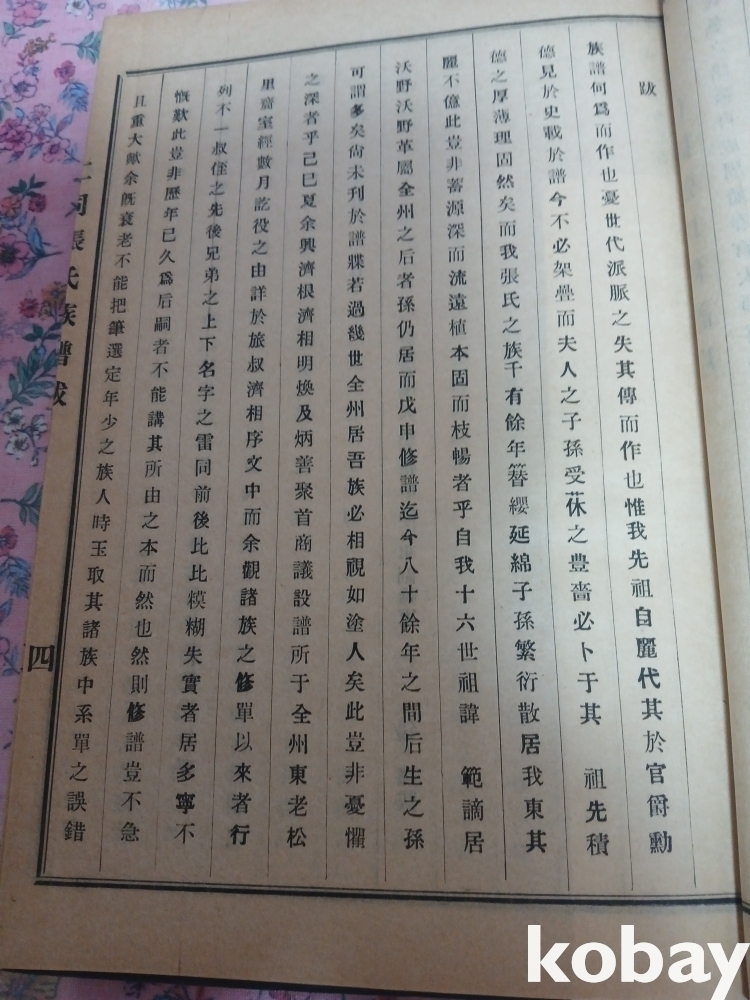 跋
族譜何爲而作也憂世代派脈之失其傳而作也惟我先祖自麗代其於官爵勳
德見於史載於譜今不必架疊而夫人之子孫受庥之豊嗇必卜于其 祖先積
德之厚薄理固然矣而我張氏之族千有餘年簪纓延綿子孫繁衍散居我東其
麗不億此豈非蓄源深而流遠植本固而枝暢者乎自我十六世祖諱 範謫居
沃野沃野革屬全州之后者孫仍居而戊申修譜迄今八十餘年之間后生之孫
可謂多矣尙未刊於譜牒若過幾世全州居吾族必相視如塗人矣此豈非憂懼
之深者乎己巳夏余興濟根濟相明煥及炳善聚首商議設譜所于全州東老松
里齋室經數月訖役之由詳於旅叔濟相序文中而余觀諸族之修單以來者行
列不一叔侄之先後兄弟之上下名字之雷同前後比比模糊失實者居多寧不
慨歎此豈非歷年已久爲后嗣者不能講其所由之本而然也然則修譜豈不急
且重大歟余旣衰老不能把筆選定年少之族人時玉取其諸族中系單之誤錯
張氏族譜跋
四
kobay